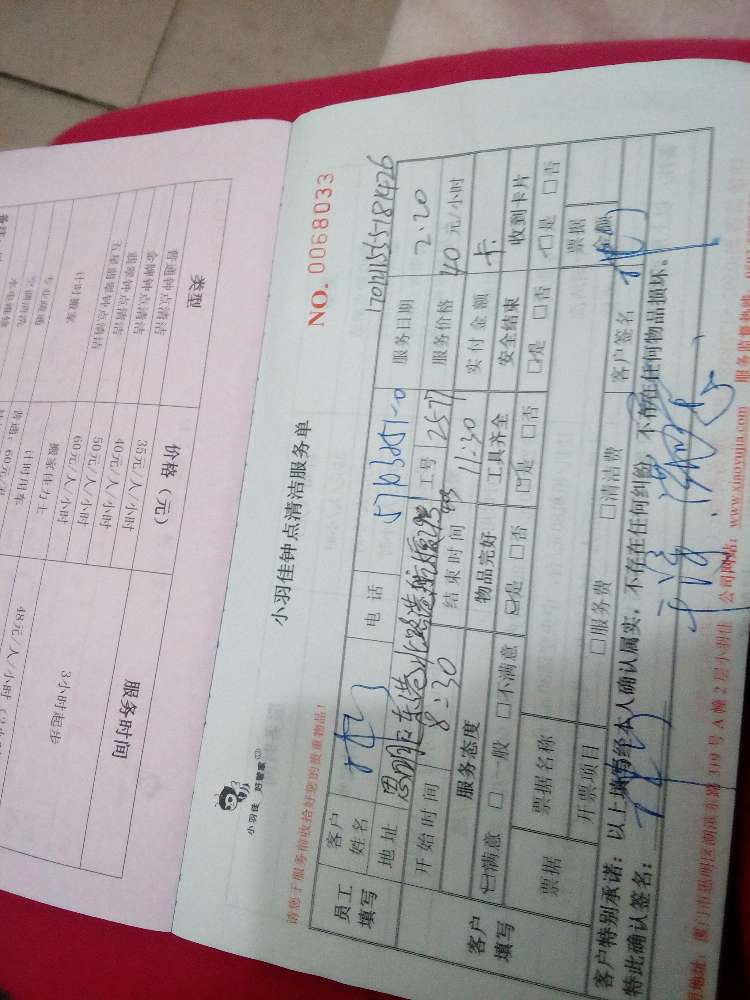 类型
价格（元）
服务时间
普通钟点清洁
35元/人/小时
金牌钟点清洁
40元/人/小时
翡翠钟点清洁
50元/人/小时
五星翡翠钟点清洁
60元/人/小时
3小时起步
计时搬家
搬家佳力士
48元/人/小时
计时用车
专业疏通
空调清洗
NO. 0068033
小羽佳 好管家
小羽佳钟点清洁服务单
请您于服务前收拾好您的贵重物品！
1701215557181426
员工填写
客户姓名
电话
5703251-0
服务日期
2.20
地址
思明区东港北路港航大厦
工号
2577
服务价格
40元/小时
开始时间
8:30
结束时间
11:30
实付金额
卡
客户填写
服务态度
物品完好
工具齐全
安全结束
收到卡片
满意 □一般 □不满意
是 □否
是 □否
是 □否
是 □否
票据
票据名称
票据金额
开票项目
□服务费 □清洁费
客户签名
客户特别承诺：以上填写经本人确认属实，不存在任何纠纷，不存在任何物品损坏。
特此确认签名：
地址：厦门市思明区湖滨东路319号A幢2层小羽佳 公司网站：www.xiaoyujia.com 服务监督热线